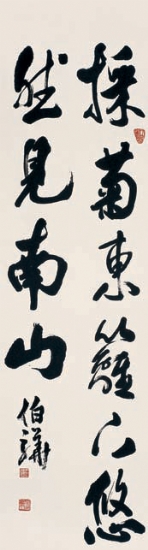 採菊東籬下悠
然見南山
伯謙